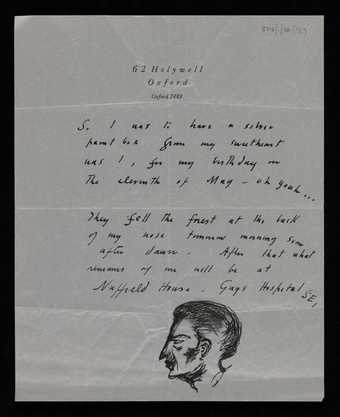 62 Holywell
Oxford
Oxford 2489
So I was to have a
paint box from my sweetheart
was I, for my birthday on
the eleventh of May - oh yeah...
They fell the forest at the back
of my nose tomorrow morning soon
after dawn. After that what
remains of me will be at
Nuffield House. Guys Hospital SE1